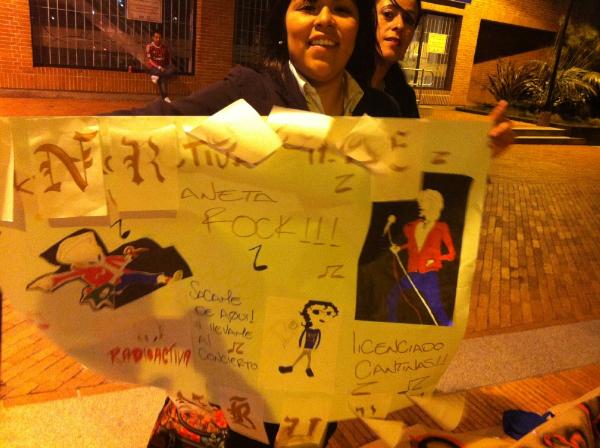 N R
ANETA
ROCK!!!
SACAME
DE AQUI!
Y LLEVAME
AL
CONCIERTO
RADIOACTIVA
LICENCIADO
CANTINAS!!!
R